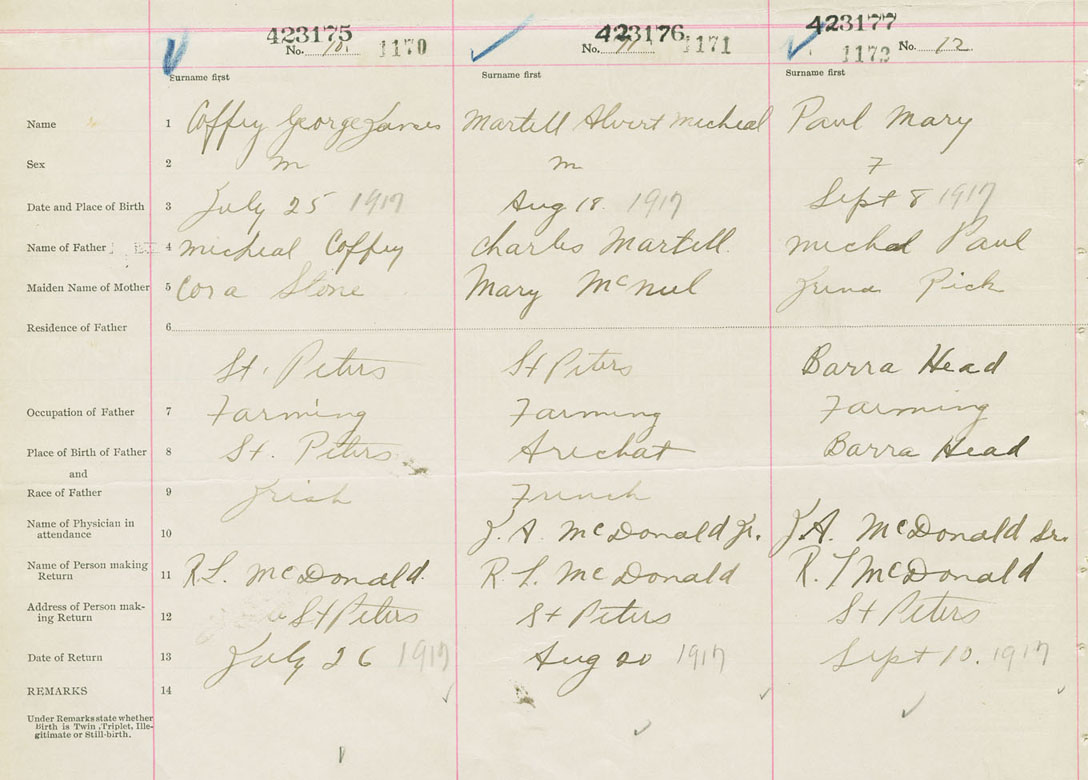 423175 423176 423177
No. 10 1170 No. 11 1171 1173 No. 12
Surname first Surname first Surname first
Name 1 Coffey George James Martell Alvert Micheal Paul Mary
Sex 2 m m F
Date and Place of Birth 3 July 25 1917 Aug 18 1917 Sept 8 1917
Name of Father 4 Micheal Coffey Charles Martell Michel Paul
Maiden Name of Mother 5 Cora Stone Mary McNeil Pick
Residence of Father 6
St. Peters St Peters Barra Head
Occupation of Father 7 Farming Farming Farming
Place of Birth of Father 8 St. Peters Arichat Barra Head
and
Race of Father 9 Irish French
Name of Physician in
attendance 10 J. A. McDonald Jr. J. A. McDonald Sr.
Name of Person making
Return 11 R. L. McDonald R L McDonald R. L McDonald
Address of Person mak-
ing Return 12 St Peters St Peters St Peters
Date of Return 13 July 26 1917 Aug 20 1917 Sept 10. 1917
REMARKS 14
Under Remarks state whether
Birth is Twin, Triplet, Ille-
gitimate or Still-birth.